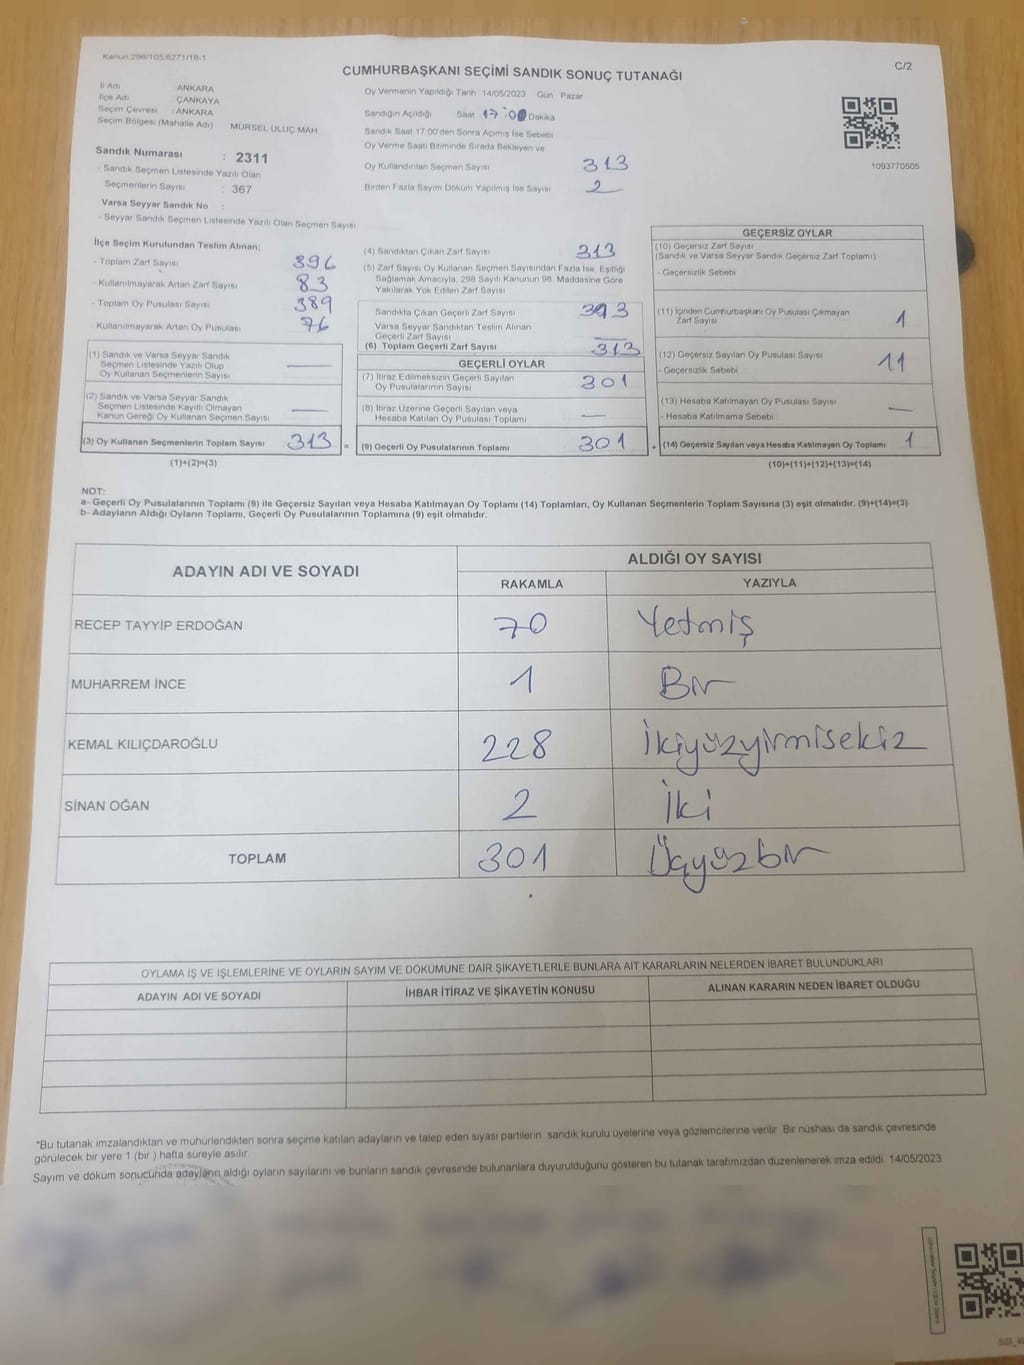 Kanun.298/105.6271/18-1
C/2
CUMHURBAŞKANI SEÇİMİ SANDIK SONUÇ TUTANAĞI
İl Adı : ANKARA
İlçe Adı : ÇANKAYA
Seçim Çevresi : ANKARA
Seçim Bölgesi (Mahalle Adı) : MÜRSEL ULUÇ MAH
Sandık Numarası : 2311
- Sandık Seçmen Listesinde Yazılı Olan
Seçmenlerin Sayısı : 367
Varsa Seyyar Sandık No :
- Seyyar Sandık Seçmen Listesinde Yazılı Olan Seçmen Sayısı
Oy Vermenin Yapıldığı Tarih : 14/05/2023 Gün : Pazar
Sandığın Açıldığı Saat 17:00 Dakika
Sandık Saat 17.00'den Sonra Açılmış İse Sebebi
Oy Verme Saati Bitiminde Sırada Bekleyen ve
Oy Kullandırılan Seçmen Sayısı 313
Birden Fazla Sayım Döküm Yapılmış İse Sayısı 2
1093770505
İlçe Seçim Kurulundan Teslim Alınan;
- Toplam Zarf Sayısı 396
- Kullanılmayarak Artan Zarf Sayısı 83
- Toplam Oy Pusulası Sayısı 389
- Kullanılmayarak Artan Oy Pusulası 76
(1) Sandık ve Varsa Seyyar Sandık
Seçmen Listesinde Yazılı Olup
Oy Kullanan Seçmenlerin Sayısı —
(2) Sandık ve Varsa Seyyar Sandık
Seçmen Listesinde Kayıtlı Olmayan
Kanun Gereği Oy Kullanan Seçmen Sayısı —
(3) Oy Kullanan Seçmenlerin Toplam Sayısı 313 =
(1)+(2)=(3)
(4) Sandıktan Çıkan Zarf Sayısı 313
(5) Zarf Sayısı Oy Kullanan Seçmen Sayısından Fazla İse, Eşitliği
Sağlamak Amacıyla, 298 Sayılı Kanunun 98. Maddesine Göre
Yakılarak Yok Edilen Zarf Sayısı
Sandıkta Çıkan Geçerli Zarf Sayısı 313
Varsa Seyyar Sandıktan Teslim Alınan
Geçerli Zarf Sayısı —
(6) Toplam Geçerli Zarf Sayısı 313
GEÇERLİ OYLAR
(7) İtiraz Edilmeksizin Geçerli Sayılan
Oy Pusulalarının Sayısı 301
(8) İtiraz Üzerine Geçerli Sayılan veya
Hesaba Katılan Oy Pusulası Toplamı —
(9) Geçerli Oy Pusulalarının Toplamı 301 +
GEÇERSİZ OYLAR
(10) Geçersiz Zarf Sayısı
(Sandık ve Varsa Seyyar Sandık Geçersiz Zarf Toplamı)
- Geçersizlik Sebebi
(11) İçinden Cumhurbaşkanı Oy Pusulası Çıkmayan
Zarf Sayısı 1
(12) Geçersiz Sayılan Oy Pusulası Sayısı 11
- Geçersizlik Sebebi
(13) Hesaba Katılmayan Oy Pusulası Sayısı —
- Hesaba Katılmama Sebebi
(14) Geçersiz Sayılan veya Hesaba Katılmayan Oy Toplamı 1
(10)+(11)+(12)+(13)=(14)
NOT:
a- Geçerli Oy Pusulalarının Toplamı (9) ile Geçersiz Sayılan veya Hesaba Katılmayan Oy Toplamı (14) Toplamları, Oy Kullanan Seçmenlerin Toplam Sayısına (3) eşit olmalıdır. (9)+(14)=(3)
b- Adayların Aldığı Oyların Toplamı, Geçerli Oy Pusulalarının Toplamına (9) eşit olmalıdır.
ADAYIN ADI VE SOYADI ALDIĞI OY SAYISI
RAKAMLA YAZIYLA
RECEP TAYYİP ERDOĞAN 70 Yetmiş
MUHARREM İNCE 1 Bir
KEMAL KILIÇDAROĞLU 228 İkiyüzyirmisekiz
SİNAN OĞAN 2 İki
TOPLAM 301 Üçyüzbir
OYLAMA İŞ VE İŞLEMLERİNE VE OYLARIN SAYIM VE DÖKÜMÜNE DAİR ŞİKAYETLERLE BUNLARA AİT KARARLARIN NELERDEN İBARET BULUNDUKLARI
ADAYIN ADI VE SOYADI İHBAR İTİRAZ VE ŞİKAYETİN KONUSU ALINAN KARARIN NEDEN İBARET OLDUĞU
*Bu tutanak imzalandıktan ve mühürlendikten sonra seçime katılan adayların ve talep eden siyasi partilerin sandık kurulu üyelerine veya gözlemcilerine verilir. Bir nüshası da sandık çevresinde
görülecek bir yere 1 (bir) hafta süreyle asılır.
Sayım ve döküm sonucunda adayların aldığı oyların sayılarını ve bunların sandık çevresinde bulunanlara duyurulduğunu gösteren bu tutanak tarafımızdan düzenlenerek imza edildi. 14/05/2023